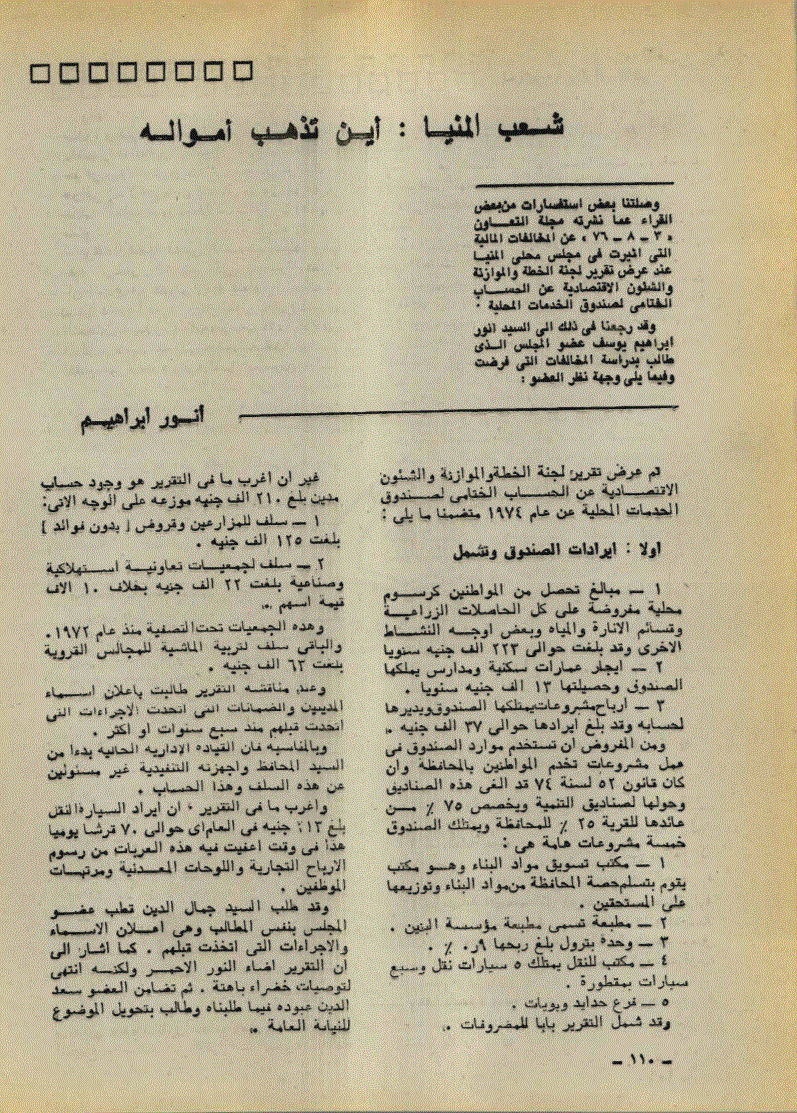 شعب المنيا : أين تذهب أمواله
وصلتنا بعض استفسارات من بعض
القراء عما نشرته مجلة التعاون
« ٣ – ٨ – ٧٦ » عن المخالفات المالية
التى اثيرت فى مجلس محلى المنيا
عند عرض تقرير لجنة الخطة والموازنة
والشئون الاقتصادية عن الحساب
الختامى لصندوق الخدمات المحلية .
وقد رجعنا فى ذلك الى السيد انور
ابراهيم يوسف عضو المجلس الذى
طالب بدراسة المخالفات التى فرضت
وفيما يلى وجهة نظر العضو :
أنور ابراهيم
تم عرض تقرير لجنة الخطة والموازنة والشئون
الاقتصادية عن الحساب الختامى لصندوق
الخدمات المحلية عن عام ١٩٧٤ متضمنا ما يلى :
اولا : ايرادات الصندوق وتشمل
١ – مبالغ تحصل من المواطنين كرسوم
محلية مفروضة على كل الحاصلات الزراعية
وتسائم الانارة والمياه وبعض اوجه النشاط
الاخرى وقد بلغت حوالى ٢٢٣ الف جنيه سنويا
٢ – ايجار عمارات سكنية ومدارس يملكها
الصندوق وحصيلتها ١٣ الف جنيه سنويا .
٣ – ارباح مشروعات يمتلكها الصندوق ويديرها
لحسابه وقد بلغ ايرادها حوالى ٣٧ الف جنيه .
ومن المفروض ان تستخدم موارد الصندوق فى
عمل مشروعات تخدم المواطنين بالمحافظة وان
كان قانون ٥٢ لسنة ٧٤ قد الغى هذه الصناديق
وحولها لصناديق التنمية ويخصص ٧٥ ٪ من
عائدها للقرية ٢٥ ٪ للمحافظة ويمتلك الصندوق
خمسة مشروعات هامة هى :
١ – مكتب تسويق مواد البناء وهو مكتب
يقوم بتسلم حصة المحافظة من مواد البناء وتوزيعها
على المستحقين .
٢ – مطبعة تسمى مطبعة مؤسسة البنين .
٣ – وحدة بترول بلغ ربحها ٩ر٠ ٪ .
٤ – مكتب للنقل يمتلك ٥ سيارات نقل وسبع
سيارات بمقطورة .
٥ – فرع حدايد وبويات .
وقد شمل التقرير بابا للمصروفات .
غير ان اغرب ما فى التقرير هو وجود حساب
مدين بلغ ٢١٠ الف جنيه موزعه على الوجه الاتى :
١ – سلف للمزارعين وقروض [ بدون فوائد ]
بلغت ١٢٥ الف جنيه .
٢ – سلف لجمعيات تعاونية استهلاكية
وصناعية بلغت ٢٢ الف جنيه بخلاف ١٠ الاف
قيمة اسهم .
وهذه الجمعيات تحت التصفية منذ عام ١٩٧٢ .
والباقى سلف لتربية الماشية للمجالس القروية
بلغت ٦٣ الف جنيه .
وعند مناقشه التقرير طالبت باعلان اسماء
المدينين والضمانات التى اتخدت الاجراءات التى
اتخدت قبلهم منذ سبع سنوات او اكثر .
وبالمناسبه فان القياده الاداريه الحاليه بدءا من
السيد المحافظ واجهزته التنفيدية غير مسئولين
عن هذه السلف وهذا الحساب .
واغرب ما فى التقرير ، ان ايراد السيارة النقل
بلغ جنيه فى العام اى حوالى ٧٠ قرشا يوميا
هذا فى وقت اعفيت فيه هذه العربات من رسوم
الارباح التجارية واللوحات المعدنية ومرتبات
الموظفين .
وقد طلب السيد جمال الدين قطب عضو
المجلس بنفس المطالب وهى اعلان الاسماء
والاجراءات التى اتخذت قبلهم . كما اشار الى
ان التقرير اضاء النور الاحمر ولكنه انتهى
لتوصيات خضراء باهتة . ثم تضامن العضو سعد
الدين عبوده فيما طلبناه وطالب بتحويل الموضوع
للنيابة العامة .
– ١١٠ –